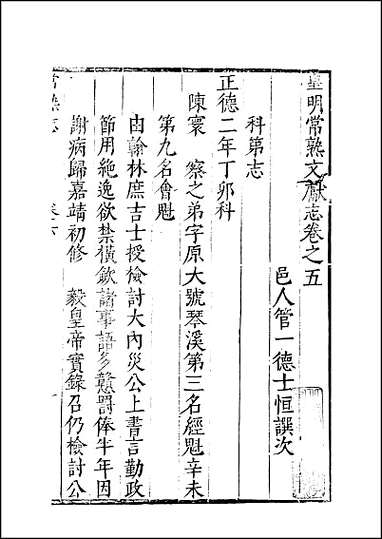 皇明常熟文獻志卷之五
邑人管一德士恒譔次
科第志
正德二年丁卯科
陳寰 察之弟字原大號琴溪第三名經魁辛未
第九名會魁
由翰林庶吉士授檢討大內災公上書言勤政
節用絶逸欲禁橫歛諸事語多戇罸俸半年因
謝病歸嘉靖初修 毅皇帝實錄召仍檢討公